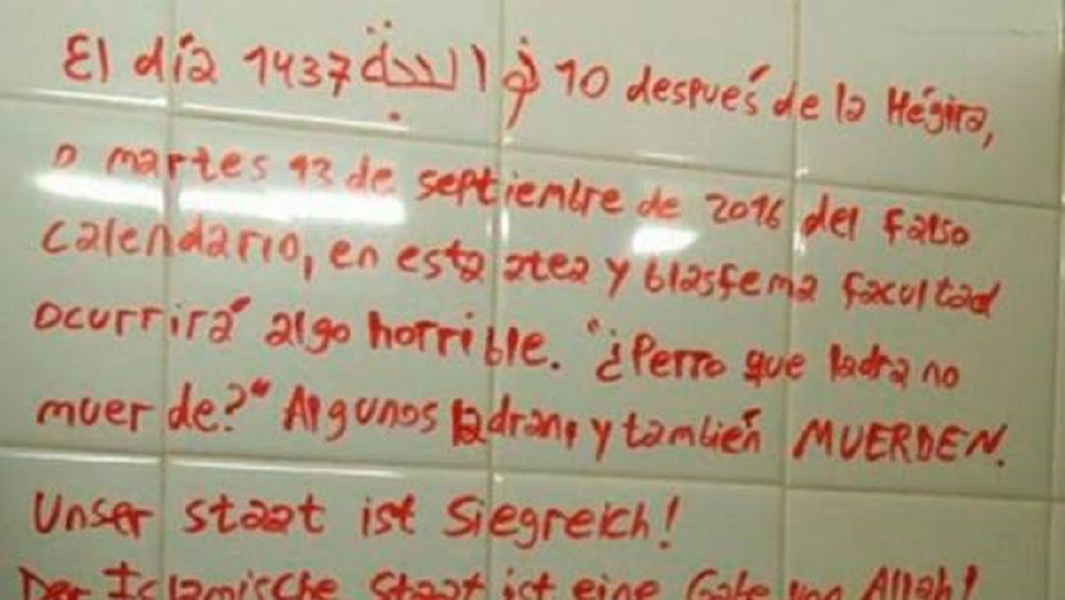 El día 1437 ذو الحجة 10 después de la Hégira,
o martes 13 de septiembre de 2016 del falso
calendario, en esta atea y blasfema facultad
ocurrirá algo horrible. "¿Perro que ladra no
muerde?" Algunos ladran, y también MUERDEN.
Unser staat ist Siegreich!
Der Islamische Staat ist eine Gabe von Allah!